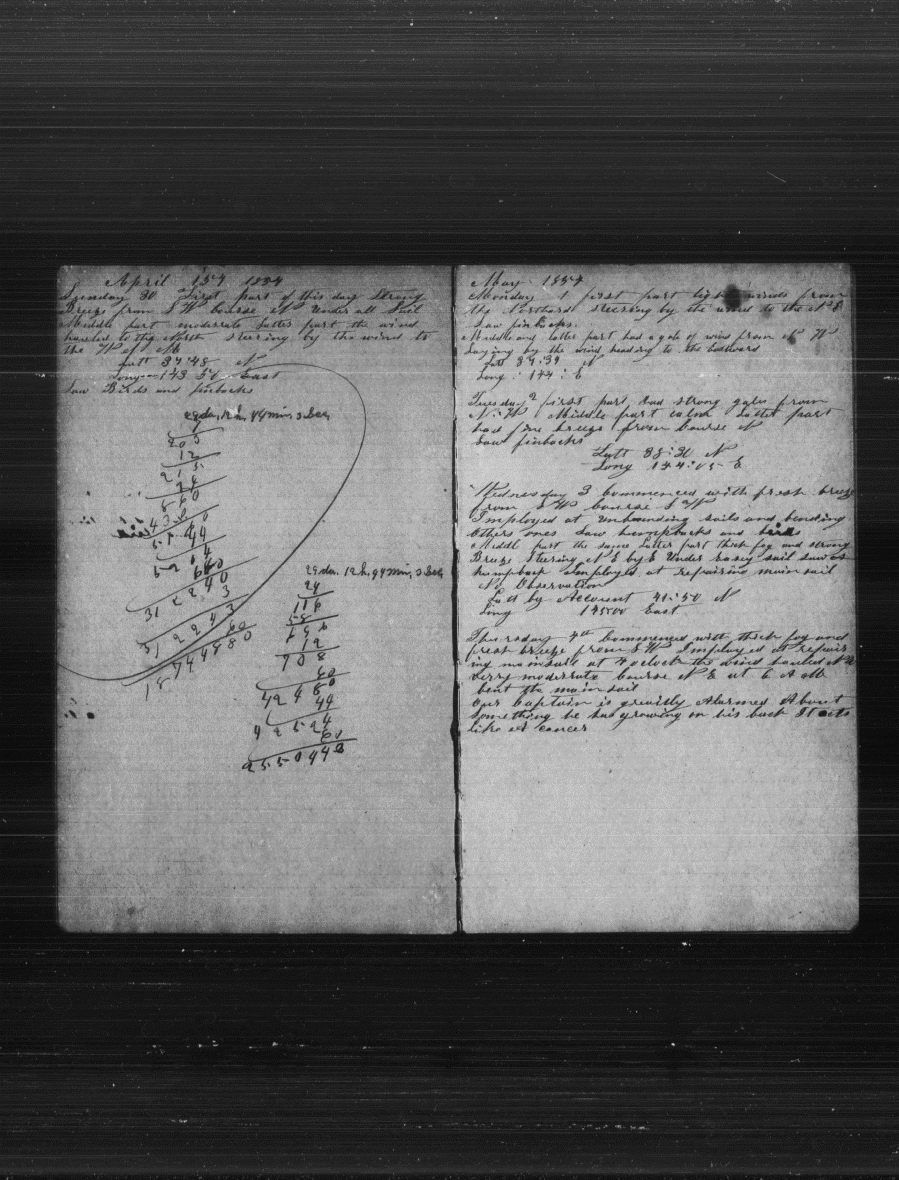 April 1854 1854
Sunday 30 First part of this day Strong
Breeze from S W Course N Under all Sail
Middle part moderate Latter part the wind
hauled to the North steering by the wind to
the W of N
Latt 37=48 N
Long 143 50 East
Saw Birds and finbacks
29 da. 12 h. 44 min. 3 Sec.
7
203
12
215
24
860
430
44
60
312240
3
312243
60
18734880
29 da. 12 h. 44 min. 3 Sec.
24
116
58
696
12
708
60
42480
44
42524
60
2551440
May 1854
Monday 1 first part light winds from
the Northard steering by the wind to the N E
Saw finbacks.
Middle and latter part had a gale of wind from N W
Laying by the wind heading to the Eastward
Latt 37:39 N
Long : 144 : E
Tuesday 2 first part had strong gales from
N:W Middle part calm Latter part
had fine breeze from course N
Saw finbacks
Latt 38:30 N
Long 144:05 E
Wednesday 3 commenced with fresh breeze
from S W course S W
Imployed at Unbending sails and bending
others ones Saw humpbacks and birds
Middle part the same Latter part thick fog and strong
Breeze Steering N E by E Under easy sail saw a
humpback Imployed at repairing main sail
No Observation
Latt by Account 41:50 N
Long 145:00 East
Thursday 4th Commenced with thick fog and
fresh breeze from S W Imployed at repair
ing mainsail at 7 oclock the wind hauled N
Verry moderate course N E at 6 A M
bent the main sail
Our Captain is greatly Alarmed About
something he has growing on his back It acts
like a cancer